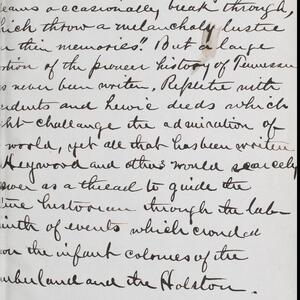 eams occasionally break through,
hich throw a melancholy lustre
on their memories". But a large
ortion of the pioneer history of Tennessee
s never been written. Replete with
idents and heroic deeds which
ght challange the admiration of
world, yet all that has been written
Heywood and others would scarcely
swer as a thread to guide the
ture historian through the lab-
rinth of events which crowded
on the infant colonies of the
mberland and the Holston.